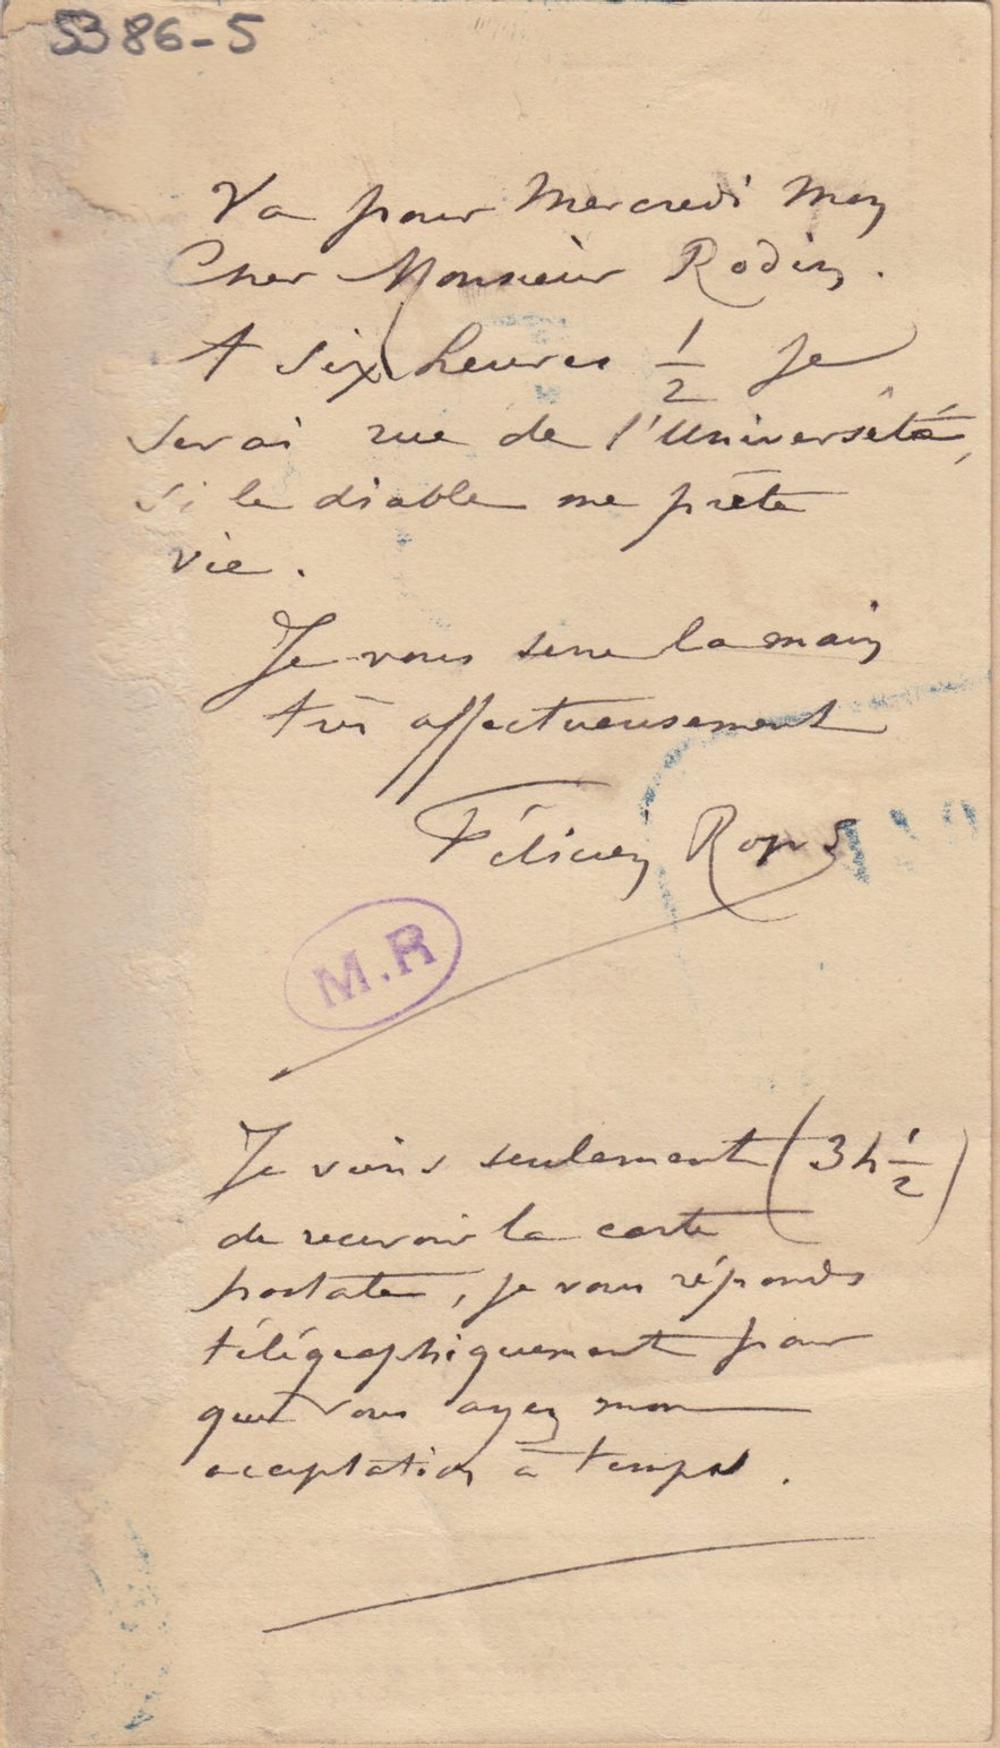 5386-5
Va pour Mercredi Mon
Cher Monsieur Rodin.
A six heures 1/2 je
serai rue de l'Université,
si le diable me prête
vie.
Je vous serre la main
très affectueusement
Félicien Rops
M.R
Je viens seulement (3 h 1/2)
de recevoir la carte
postale, je vous réponds
télégraphiquement pour
que vous ayez mon
acceptation à temps.